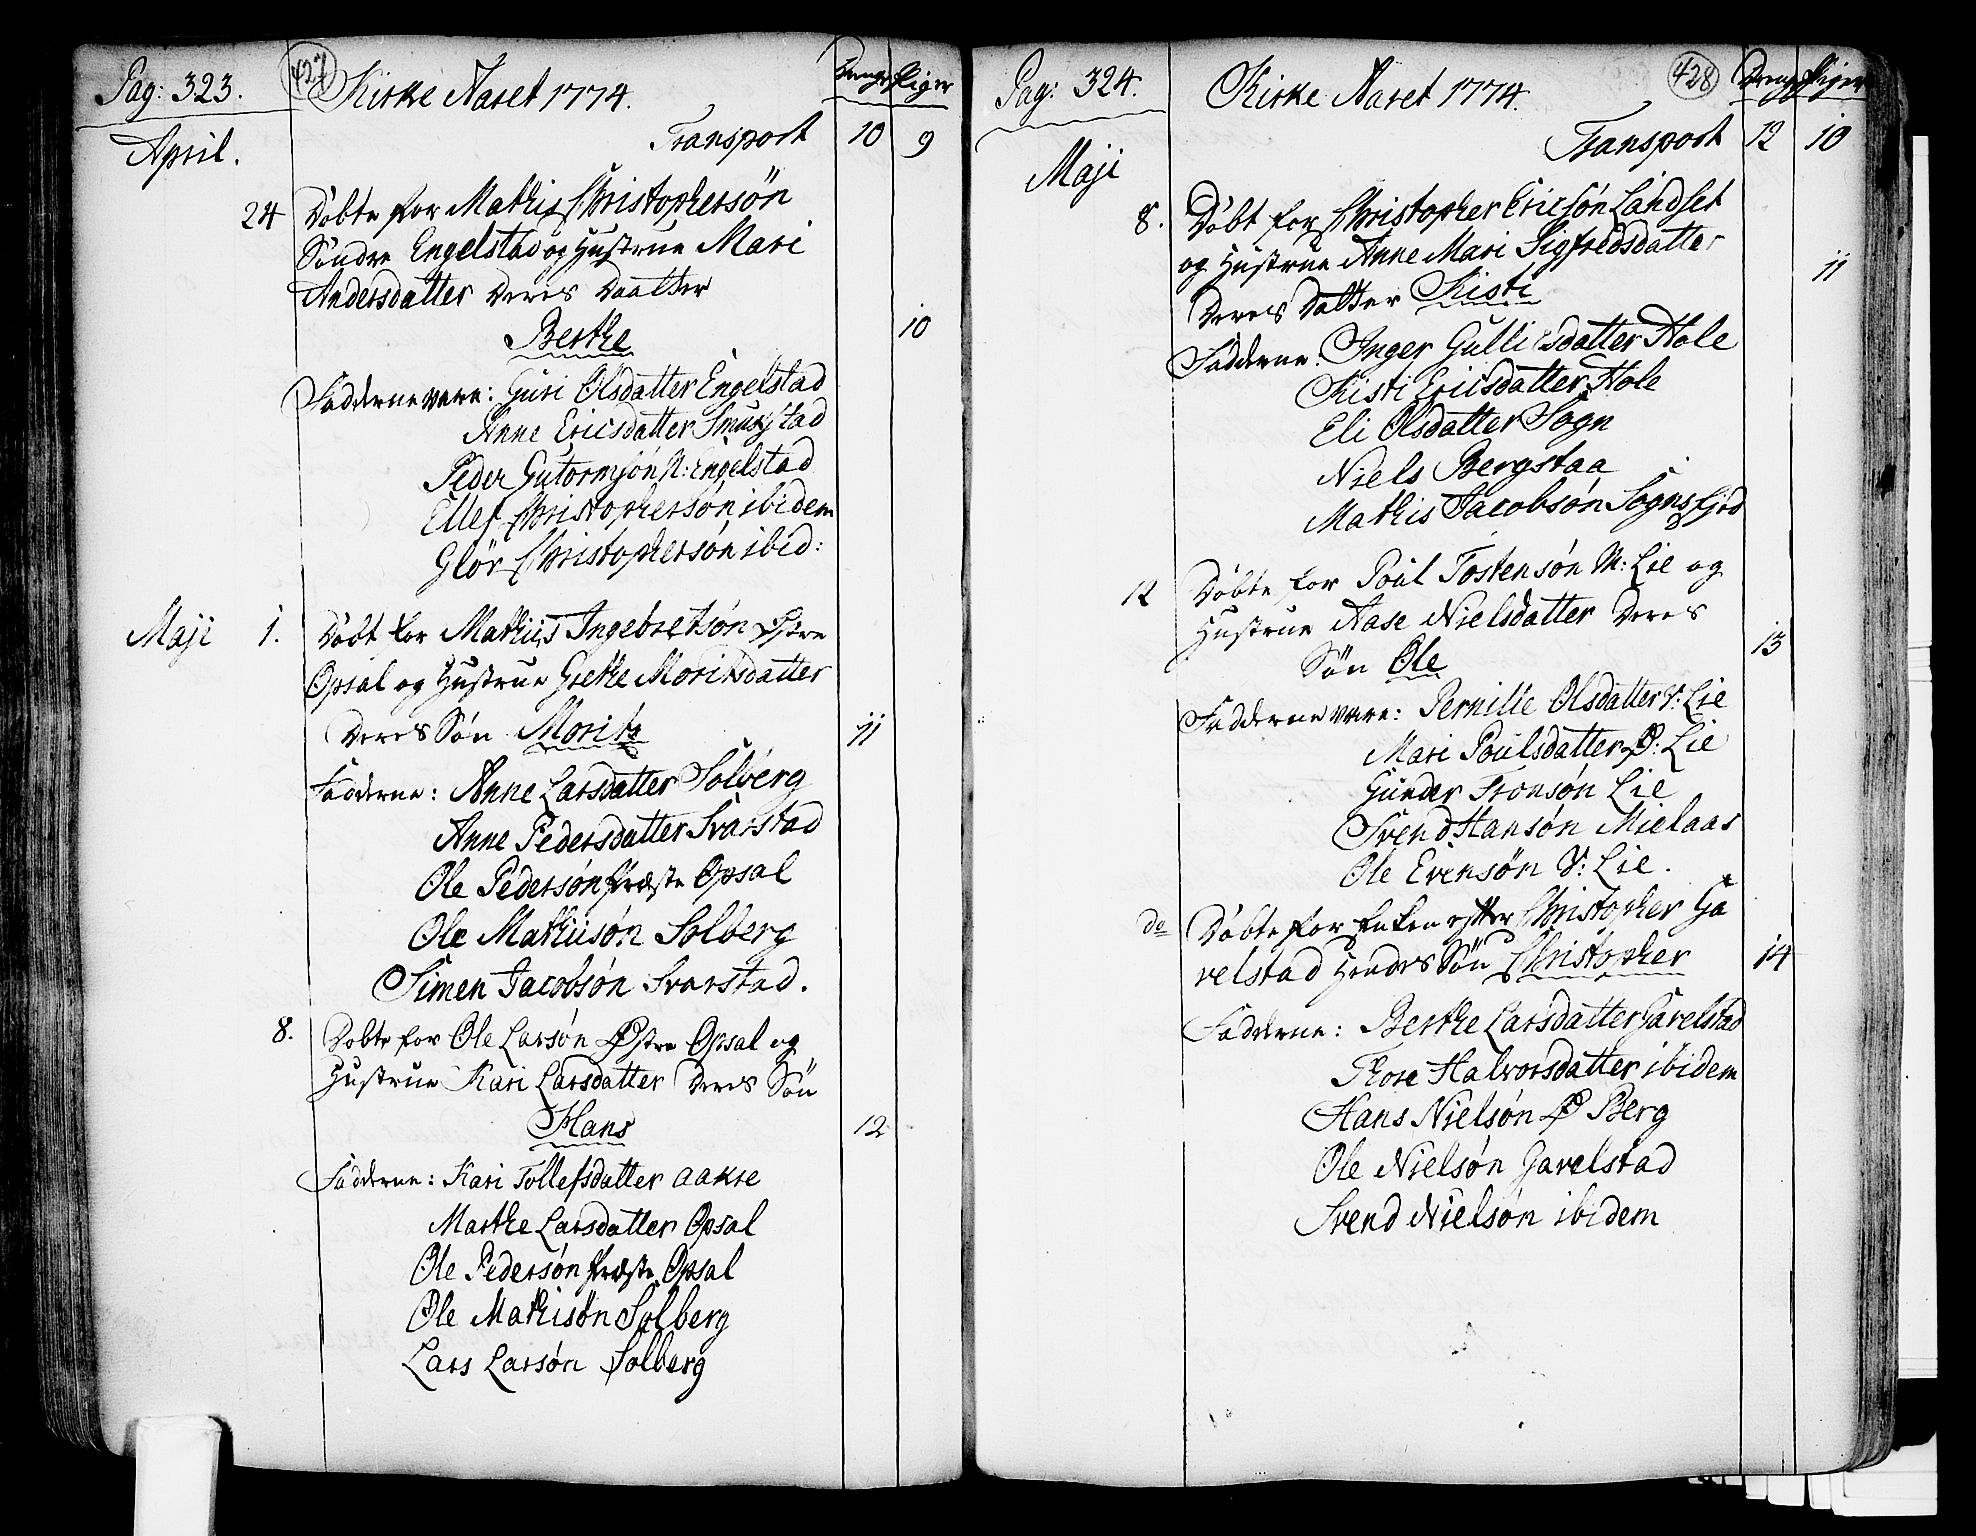 Pag: 323.
427
Kirke Aaret 1774.
Drenge Piger
April.
Transport 10 9
24 Døbte for Mathis Christophersøn
Søndre Engelstad og Hustrue Mari
Andersdatter Deres Daatter
Berthe 10
Fadderne vare: Guri Olsdatter Engelstad
Anne Ericsdatter Smugstad
Peder Gutormsøn N: Engelstad
Ellef Christophersøn ibidem
Glör Christophersøn ibid:
Maji 1. Døbt for Mathis Ingebretsøn Østre
Opsal og Hustrue Grethe Moritsdatter
Deres Søn Moritz 11
Fadderne: Anne Larsdatter Solberg
Anne Pedersdatter Svarstad
Ole Pedersøn Præste Opsal
Ole Mathisøn Solberg
Simen Jacobsøn Svarstad.
8. Døbte for Ole Larsøn Østre Opsal og
Hustrue Kari Larsdatter Deres Søn
Hans 12
Fadderne: Kari Tollefsdatter Aakre
Marthe Larsdatter Opsal
Ole Pedersøn Præste Opsal
Ole Mathisøn Solberg
Lars Larsøn Solberg
Pag: 324.
Kirke Aaret 1774.
428
Drenge Piger
Transport 12 10
Maji
8. Døbt for Christopher Ericsøn Landset
og Hustrue Anne Mari Sigfredsdatter
11
Deres Datter Kisti
Fadderne: Inger Gulliksdatter Hole
Kisti Ericsdatter Hole
Eli Olsdatter Sogn
Niels Bergstaa
Mathis Jacobsøn Sognsfjrd
12 Døbte for Poul Tostensøn M: Lie og
Hustrue Aase Nielsdatter Deres
Søn Ole 13
Fadderne vare: Pernille Olsdatter V: Lie
Mari Poulsdatter Ø: Lie
Gunder Tronsøn Lie
Svend Hansøn Mielaas
Ole Evensøn V: Lie.
do Døbte for Enken efter Christopher Ga
velstad Hendes Søn Christopher 14
Fadderne: Berthe Larsdatter Gavelstad
Thore Halvorsdatter ibidem
Hans Nielsøn Ø Berg
Ole Nielsøn Gavelstad
Svend Nielsøn ibidem